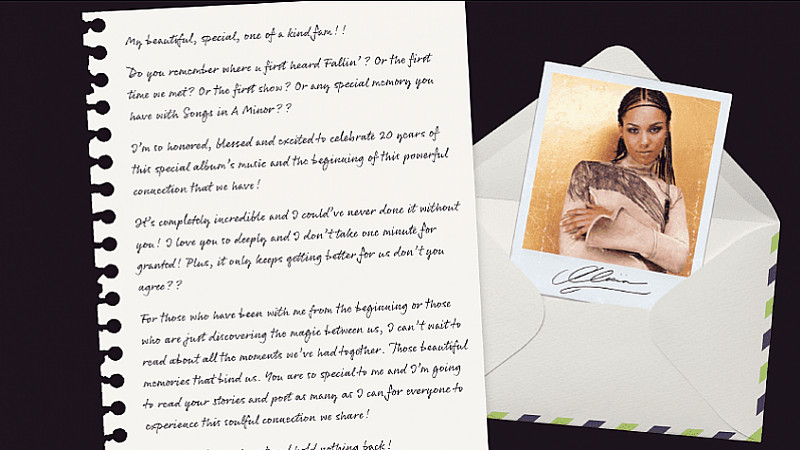 My beautiful, special, one of a kind fam!!
Do you remember where u first heard Fallin'? Or the first
time we met? Or the first show? Or any special memory you
have with Songs in A Minor??
I'm so honored, blessed and excited to celebrate 20 years of
this special album's music and the beginning of this powerful
connection that we have!
It's completely incredible and I could've never done it without
you! I love you so deeply and I don't take one minute for
granted! Plus, it only keeps getting better for us don't you
agree??
For those who have been with me from the beginning or those
who are just discovering the magic between us, I can't wait to
read about all the moments we've had together. Those beautiful
memories that bind us. You are so special to me and I'm going
to read your stories and post as many as I can for everyone to
experience this soulful connection we share!
hold nothing back!